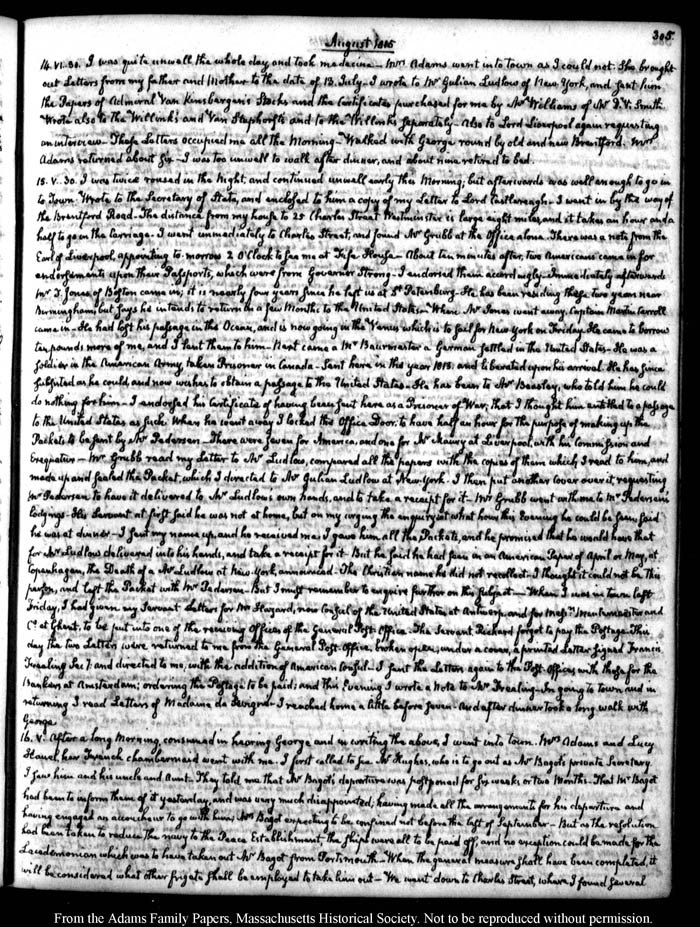 305.
August 1815
14. VI.30. I was quite unwell the whole day and took medecine. Mrs Adams went into town as I could not. She brought
out Letters from my father and Mother to the date of 13. July. I wrote to Mr Gulian Ludlow of New York, and sent him
the Papers of Admiral Van Kinsbergen's Stocks and the Certificates purchased for me by Mr Williams of Mr J. V. Smith
Wrote also to the Willinks and Van Staphorsts and to the Willinks separately. Also to Lord Liverpool again requesting
an interview. These Letters occupied me all the Morning. Walked with George round by old and new Brentford. Mrs
Adams returned about Six. I was too unwell to walk after dinner, and about nine retired to bed.
15. V.30. I was twice roused in the Night, and continued unwell early this Morning, but afterwards was well enough to go in
to Town. Wrote to the Secretary of State, and enclosed to him a copy of my Letter to Lord Castlereagh. I went in by the way of
the Brentford Road. The distance from my house to 25 Charles Street Westminster is large eight miles, and it takes an hour and a
half to go in the Carriage. I went immediately to Charles Street, and found Mr Grubb at the Office alone. There was a note from the
Earl of Liverpool, appointing to-morrow 2 O'Clock to see me at Fife House. About ten minutes after, two Americans came in for
endorsements upon their Passports, which were from Governor Strong. I endorsed them accordingly. Immediately afterwards
Mr T. Jones of Boston came in; it is nearly four years since he left us at St Petersburg. He has been residing these two years near
Birmingham, but says he intends to return in a few Months to the United States. When Mr Jones went away, Captain Martin Carroll
came in. He had lost his passage in the Ocean, and is now going in the Venus which is to sail for New York on Friday. He came to borrow
ten pounds more of me, and I lent them to him. Next came a Mr Baurmeister a German settled in the United States. He was a
Soldier in the American Army, taken Prisoner in Canada. Sent here in this year 1813. and liberated upon his arrival. He has since
subsisted as he could, and now wishes to obtain a passage to the United States. He has been to Mr Beasley, who told him he could
do nothing for him. I endorsed his Certificate of having been sent here as a Prisoner of War, that I thought him entitled to a passage
to the United States as such. When he went away I locked the Office Door, to have half an hour for the purpose of making up the
Packets to be sent by Mr Pedersen. There were seven for America, and one for Mr Maury at Liverpool, with his Commission and
Exequatur. Mr Grubb read my Letter to Mr Ludlow, compared all the papers with the copies of them which I read to him, and
made up and sealed the Packet, which I directed to Mr Gulian Ludlow at New York. I then put another cover over it requesting
Mr Pedersen to have it delivered to Mr Ludlow's own hands, and to take a receipt for it. Mr Grubb went with me to Mr Pedersen's
lodgings. His Servant at first said he was not at home, but on my urging the enquiry at what hour this Evening he could be seen, said
he was at dinner. I sent my name up, and he received me. I gave him all the Packets, and he promised that he would have that
for Mr Ludlow delivered into his hands, and take a receipt for it. But he said he had seen in an American Paper of April or May, at
Copenhagen, the Death of a Mr Ludlow at New-York, announced. The Christian name he did not recollect. I thought it could not be this
person, and left the Packet with Mr Pedersen. But I must remember to enquire further on this subject. When I was in town last
Friday, I had given my Servant Letters for Mr Hazard, now Consul of the United States at Antwerp, and for Messrs Meulemeester and
Co. at Ghent, to be put into one of the receiving Offices of the General Post-Office. The Servant Richard forgot to pay the Postage. This
day the two Letters were returned to me from the General Post-Office, broken open; under a cover, a printed Letter signed Francis
Freeling Secy: and directed to me, with the addition of American Consul. I sent the Letters again to the Post-Office, with those for the
bankers at Amsterdam; ordering the Postage to be paid; and this Evening I wrote a Note to Mr Freeling. In going to town and in
returning I read Letters of Madame de Sevigné. I reached home a little before seven. And after dinner took a long walk with
George.
16. V. After a long Morning, consumed in hearing George and in writing the above, I went into town. Mrs Adams and Lucy
Houel her French chambermaid went with me. I first called to see Mr Hughes, who is to go out as Mr Bagot's private Secretary.
I saw him and his uncle and Aunt. They told me that Mr Bagot's departure was postponed for six weeks or two Months. That Mr Bagot
had been to inform them of it yesterday, and was very much disappointed; having made all the arrangements for his departure and
having engaged an accoucheur to go with him; Mrs Bagot expecting to be confined not before the last of September. But as the resolution
had been taken to reduce the navy to the Peace Establishment, the ships were all to be paid off, and no exception could be made for the
Lacedemonian which was to have taken out Mr Bagot from Portsmouth. When the general measure shall have been completed, it
will be considered what other frigate shall be employed to take him out. We went down to Charles Street, where I found several
From the Adams Family Papers, Massachusetts Historical Society. Not to be reproduced without permission.